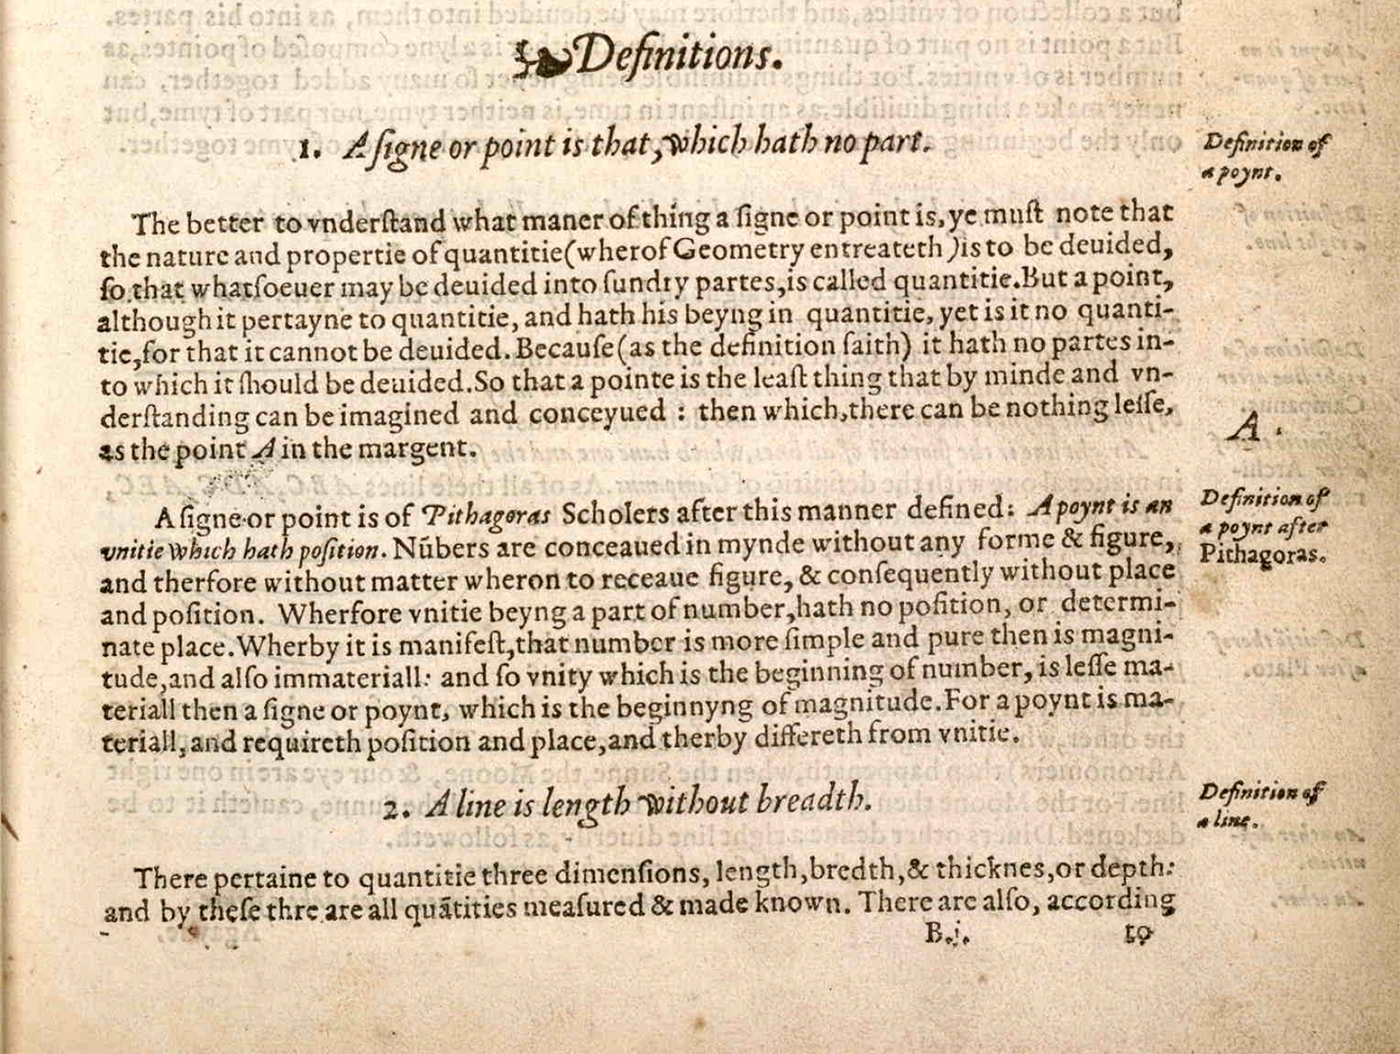 Definitions.
1. A ſigne or point is that, which hath no part.
Definition of
a poynt.
The better to vnderſtand what maner of thing a ſigne or point is, ye muſt note that
the nature and propertie of quantitie (wherof Geometry entreateth) is to be deuided,
ſo that whatſoeuer may be deuided into ſundry partes, is called quantitie. But a point,
although it pertayne to quantitie, and hath his beyng in quantitie, yet is it no quanti-
tie, for that it cannot be deuided. Becauſe (as the definition ſaith) it hath no partes in-
to which it ſhould be deuided. So that a pointe is the leaſt thing that by minde and vn-
derſtanding can be imagined and conceyued : then which, there can be nothing leſſe,
as the point A in the margent.
A .
A ſigne or point is of Pithagoras Scholers after this manner defined: A poynt is an
vnitie which hath poſition. Nũbers are conceaued in mynde without any forme & figure,
and therfore without matter wheron to receaue figure, & conſequently without place
and poſition. Wherfore vnitie beyng a part of number, hath no poſition, or determi-
nate place. Wherby it is manifeſt, that number is more ſimple and pure then is magni-
tude, and alſo immateriall: and ſo vnity which is the beginning of number, is leſſe ma-
teriall then a ſigne or poynt, which is the beginnyng of magnitude. For a poynt is ma-
teriall, and requireth poſition and place, and therby differeth from vnitie.
Definition of
a poynt after
Pithagoras.
2. A line is length without breadth.
Definition of
a line.
There pertaine to quantitie three dimenſions, length, bredth, & thicknes, or depth:
and by theſe thre are all quãtities meaſured & made known. There are alſo, according
B.j. to